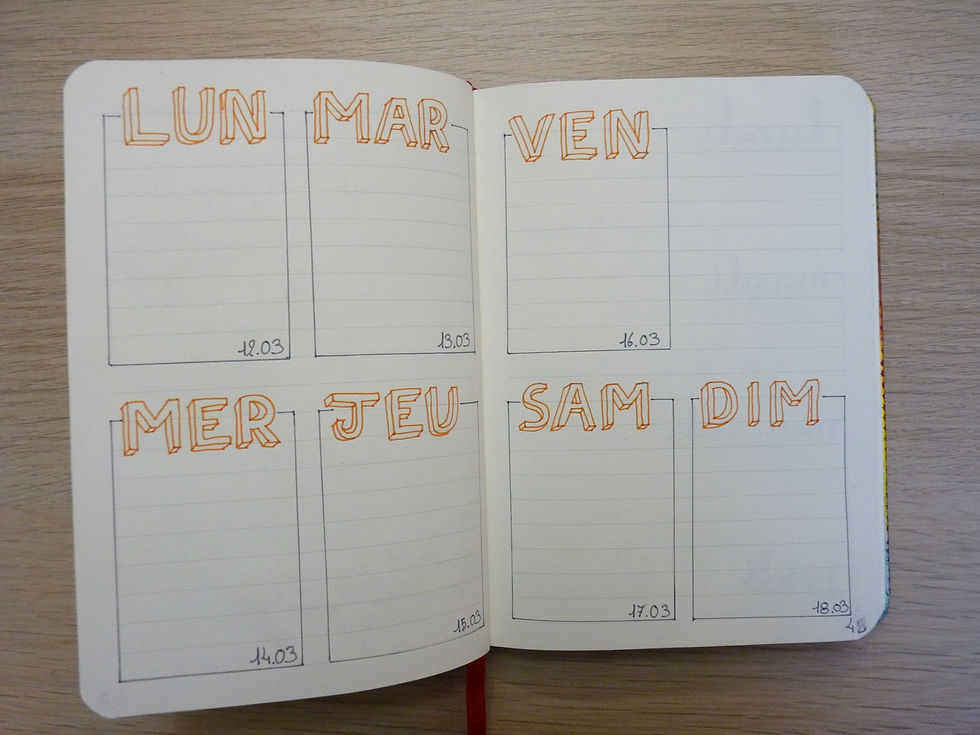 LUN
12.03
MAR
13.03
MER
14.03
JEU
15.03
VEN
16.03
SAM
17.03
DIM
18.03